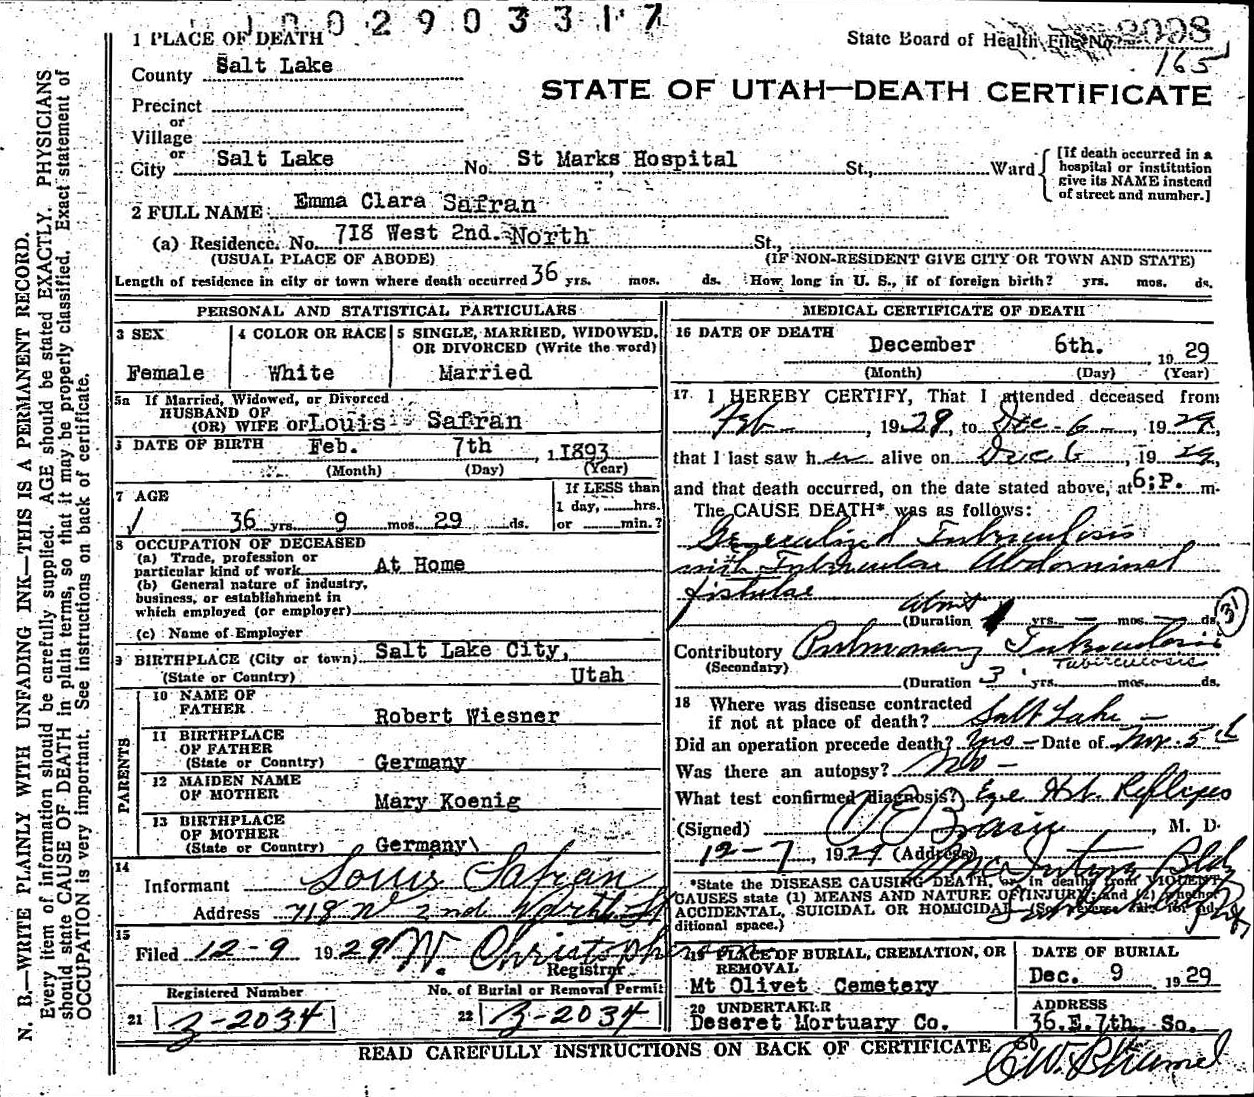 1 0 0 2 9 0 3 3 1 7
State Board of Health File No. 2098
165
1 PLACE OF DEATH
STATE OF UTAH—DEATH CERTIFICATE
County Salt Lake
Precinct
or
Village
or
City Salt Lake No. St Marks Hospital St., Ward
[If death occurred in a
hospital or institution
give its NAME instead
of street and number.]
2 FULL NAME Emma Clara Safran
(a) Residence. No. 718 West 2nd. North St.,
(USUAL PLACE OF ABODE) (IF NON-RESIDENT GIVE CITY OR TOWN AND STATE)
Length of residence in city or town where death occurred 36 yrs. mos. ds. How long in U. S., if of foreign birth? yrs. mos. ds.
PERSONAL AND STATISTICAL PARTICULARS
3 SEX
Female
4 COLOR OR RACE
White
5 SINGLE, MARRIED, WIDOWED,
OR DIVORCED (Write the word)
Married
5a If Married, Widowed, or Divorced
HUSBAND OF
(OR) WIFE OF Louis Safran
6 DATE OF BIRTH Feb. 7th , 1893
(Month) (Day) (Year)
7 AGE
36 yrs. 9 mos. 29 ds.
If LESS than
1 day, hrs.
or min.?
8 OCCUPATION OF DECEASED
(a) Trade, profession or
particular kind of work At Home
(b) General nature of industry,
business, or establishment in
which employed (or employer)
(c) Name of Employer
9 BIRTHPLACE (City or town) Salt Lake City,
(State or Country) Utah
PARENTS
10 NAME OF
FATHER Robert Wiesner
11 BIRTHPLACE
OF FATHER
(State or Country) Germany
12 MAIDEN NAME
OF MOTHER Mary Koenig
13 BIRTHPLACE
OF MOTHER
(State or Country) Germany\
14
Informant Louis Safran
Address 718 W 2nd North St
15
Filed 12-9 1929 W. Christopherson
Registrar
Registered Number
21 Z-2034
No. of Burial or Removal Permit
22 Z-2034
MEDICAL CERTIFICATE OF DEATH
16 DATE OF DEATH
December 6th. 1929
(Month) (Day) (Year)
17 I HEREBY CERTIFY, That I attended deceased from
Feb , 1929, to Dec 6 , 1929,
that I last saw her alive on Dec 6 , 1929,
and that death occurred, on the date stated above, at 6;P. m.
The CAUSE DEATH* was as follows:
Generalized Tuberculosis
with Tubercular Abdominal
fistulae
about
(Duration 1 yrs. — mos. — ds.
31
Contributory Pulmonary Tuberculosis
(Secondary) Tuberculosis
(Duration 3 yrs. mos. ds.
18 Where was disease contracted
if not at place of death? Salt Lake —
Did an operation precede death? Yes — Date of Nov. 5th
Was there an autopsy? No —
What test confirmed diagnosis?
(Signed) , M. D.
12-7, 1929 (Address) McIntyre Bldg
*State the DISEASE CAUSING DEATH, or, in deaths from VIOLENT
CAUSES state (1) MEANS AND NATURE OF INJURY; and (2) whether
ACCIDENTAL, SUICIDAL OR HOMICIDAL. (See reverse side for additional space.)
19 PLACE OF BURIAL, CREMATION, OR
REMOVAL
Mt Olivet Cemetery
DATE OF BURIAL
Dec. 9 1929
20 UNDERTAKER
Deseret Mortuary Co.
ADDRESS
36.E.7th. So.
READ CAREFULLY INSTRUCTIONS ON BACK OF CERTIFICATE
N. B.—WRITE PLAINLY WITH UNFADING INK—THIS IS A PERMANENT RECORD.
Every item of information should be carefully supplied. AGE should be stated EXACTLY. PHYSICIANS
should state CAUSE OF DEATH in plain terms, so that it may be properly classified. Exact statement of
OCCUPATION is very important. See instructions on back of certificate.